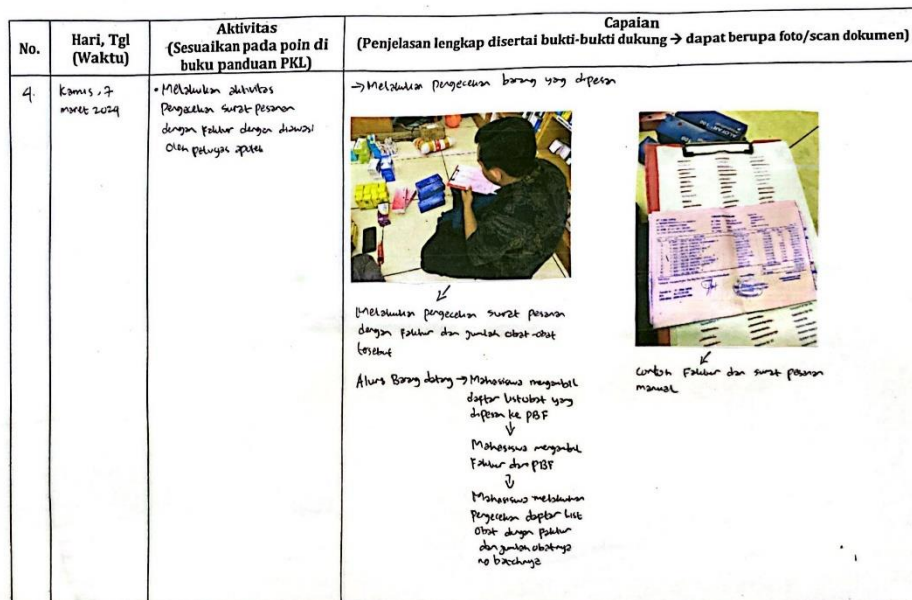 No.
Hari, Tgl
(Waktu)
Aktivitas
(Sesuaikan pada poin di
buku panduan PKL)
Capaian
(Penjelasan lengkap disertai bukti-bukti dukung → dapat berupa foto/scan dokumen)
4.
Kamis, 7
maret 2024
• Melakukan aktivitas
Pengecekan surat pesanan
dengan faktur dengan diawasi
Oleh petugas apotek
→ Melakukan pengecekan barang yang dipesan
Melakukan pengecekan surat pesanan
dengan faktur dan jumlah obat-obat
tersebut
Contoh Faktur dan surat pesanan
manual
Alurs Barang datang → Mahasiswa mengambil
daftar list obat yang
dipesan ke PBF
↓
Mahasiswa mengambil
Faktur dari PBF
↓
Mahasiswa melakukan
pengecekan daftar list
Obat dengan faktur
dan jumlah obatnya
no batchnya